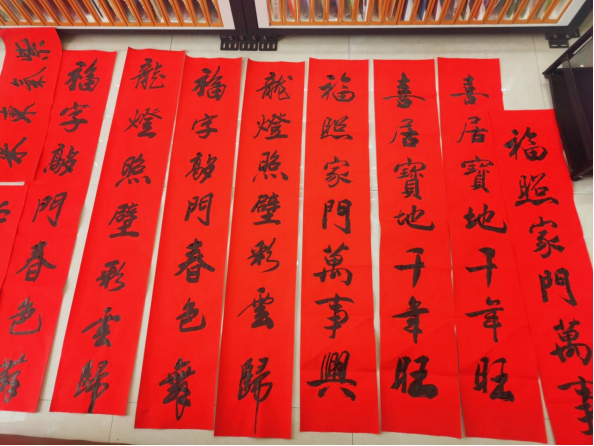 福照家門萬事
喜居寶地千年旺
喜居寶地千年旺
福照家門萬事興
龍燈照壁彩雲歸
福字敲門春色舞
龍燈照壁彩雲歸
福字敲門春色舞
紫氣東來